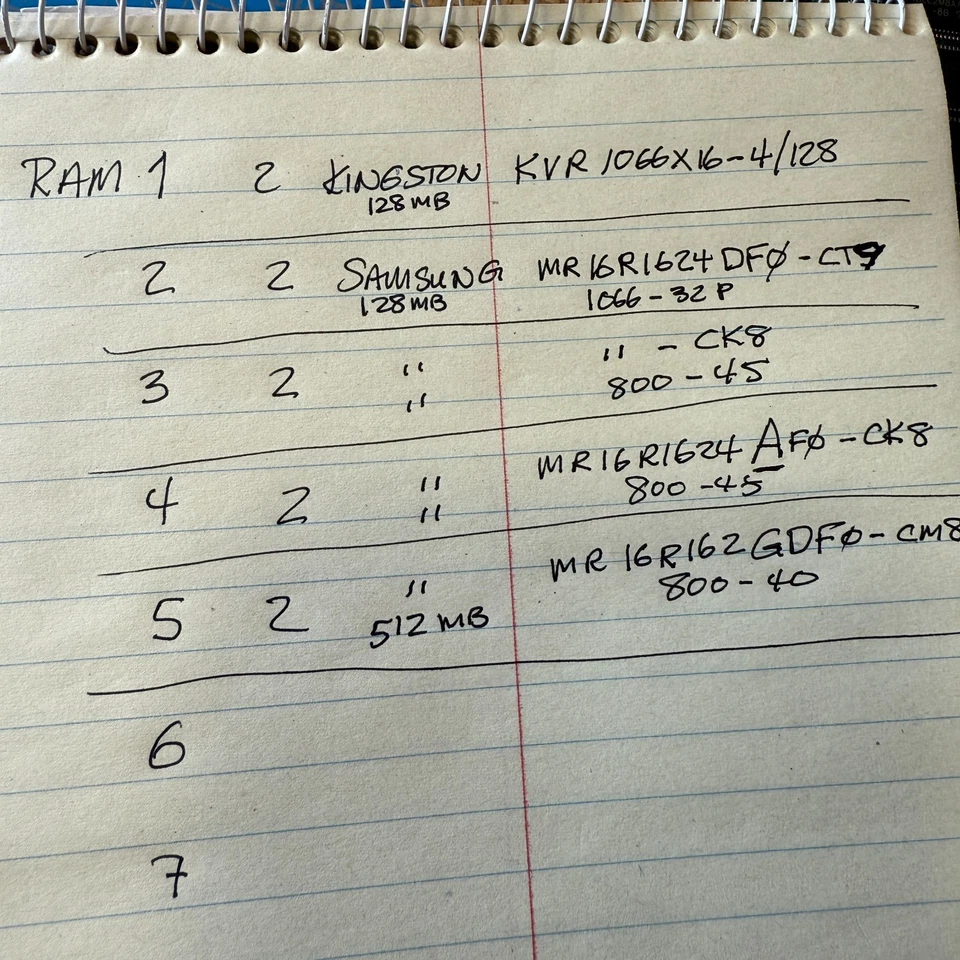 RAM 1 2 KINGSTON KVR 1066X16-4/128
128MB
2 2 SAMSUNG MR16R1624DFØ-CT9
128MB 1066-32P
3 2 " " - CK8
" 800-45
4 2 " MR16R1624AFØ-CK8
" 800-45
5 2 " MR16R162GDFØ-CM8
512MB 800-40
6
7